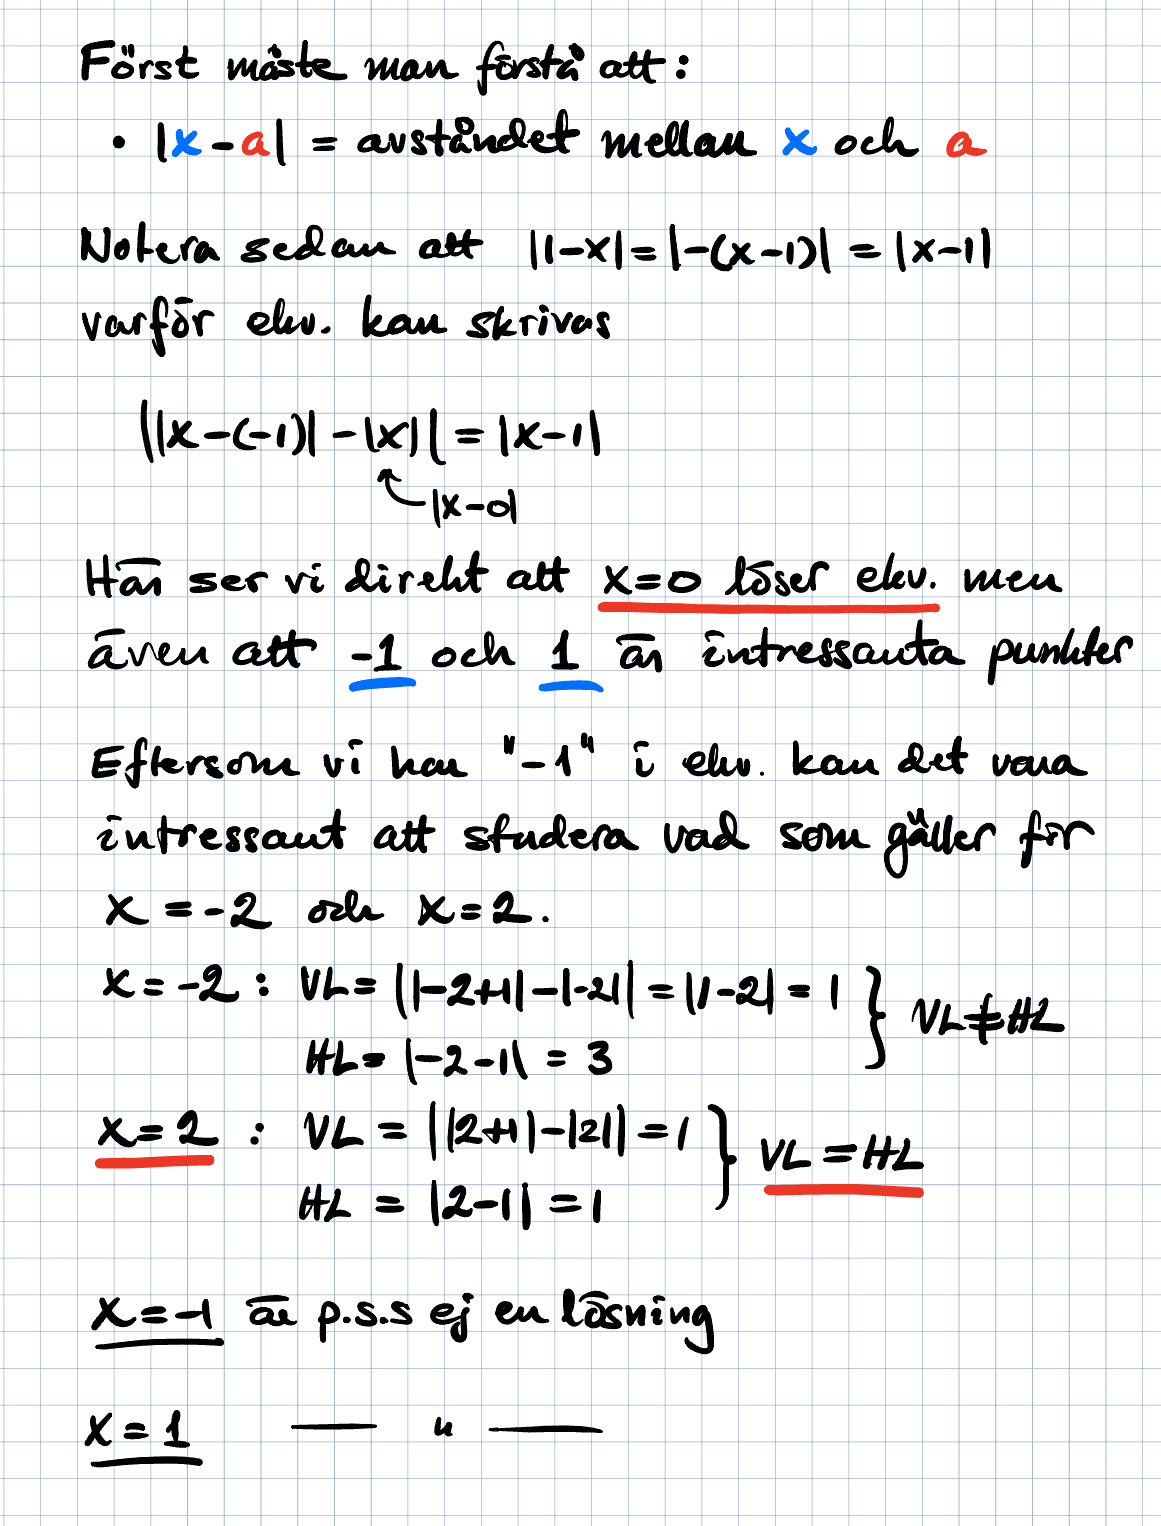 Först måste man förstå att:
• |x-a| = avståndet mellan x och a
Notera sedan att |1-x|=|-(x-1)| = |x-1|
varför ekv. kan skrivas
||x-(-1)| - |x|| = |x-1|
|x-0|
Här ser vi direkt att x=0 löser ekv. men
även att -1 och 1 är intressanta punkter
Eftersom vi har "-1" i ekv. kan det vara
intressant att studera vad som gäller för
x = -2 och x = 2.
x = -2 : VL = ||-2+1|-|-2|| = |1-2| = 1 } VL≠HL
HL = |-2-1| = 3
x = 2 : VL = ||2+1|-|2|| = 1 } VL = HL
HL = |2-1| = 1
x = -1 är p.s.s ej en lösning
x = 1 — " —